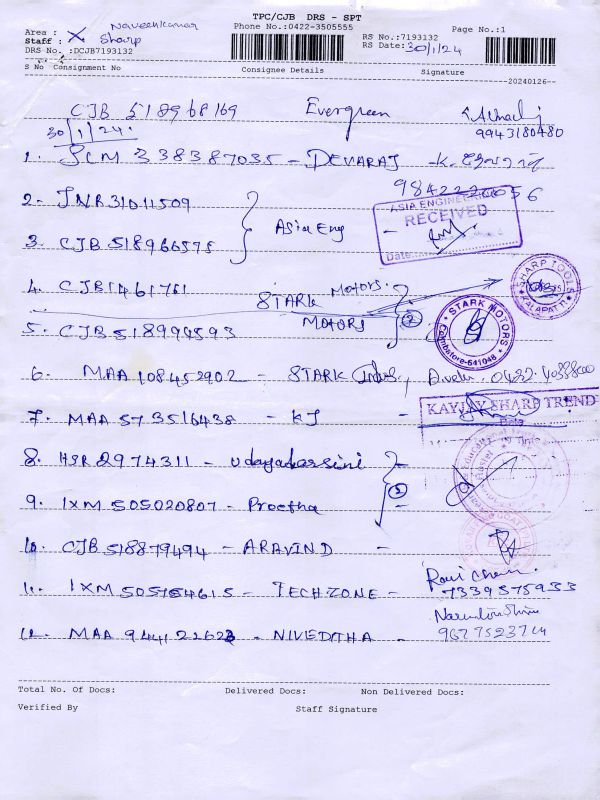 TPC/CJB DRS - SPT
Area : Naveenkumar
Phone No.:0422-3505555
Page No.:1
Staff : X Sharp
RS No.:7193132
DRS No. :DCJB7193132
RS Date: 30/1/24
S No Consignment No Consignee Details Signature
20240126
CJB 518968169 Evergreen
9943180480
30/1/24
1. SLM 338387035 - DEVARAJ - K.
9842220056
2. JNR31011509
ASIA ENGINEERING
RECEIVED
Date
Asia Eng -
3. CJB 518966575
4. CJB1461761 STARK MOTORS
SHARP TOOLS
KALAPATTI
MOTORS 2
STARK MOTORS
Coimbatore-641048
5. CJB518994593
6. MAA 108452902 - STARK Indus, 0422-4038800
7. MAA 573516438 - KJ -
KAYJAY SHARP TREND
8. HSR 2974311 - Udayadarsini
9. IXM 505020807 - Preetha
10. CJB 518879494 - ARAVIND -
11. IXM 505754615 - TECHZONE -
7339575933
12. MAA 944122623 - NIVEDITHA -
Total No. Of Docs: Delivered Docs: Non Delivered Docs:
Verified By Staff Signature